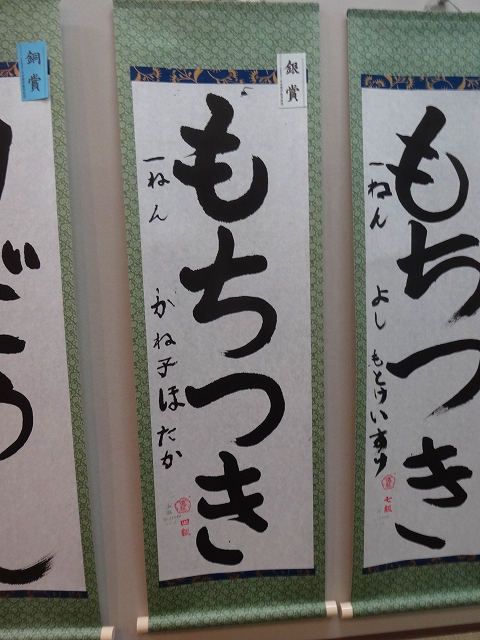 銀賞
もちつき
一ねん かね子ほたか
四級
もちつき
一ねん よしもと
七級
銅賞